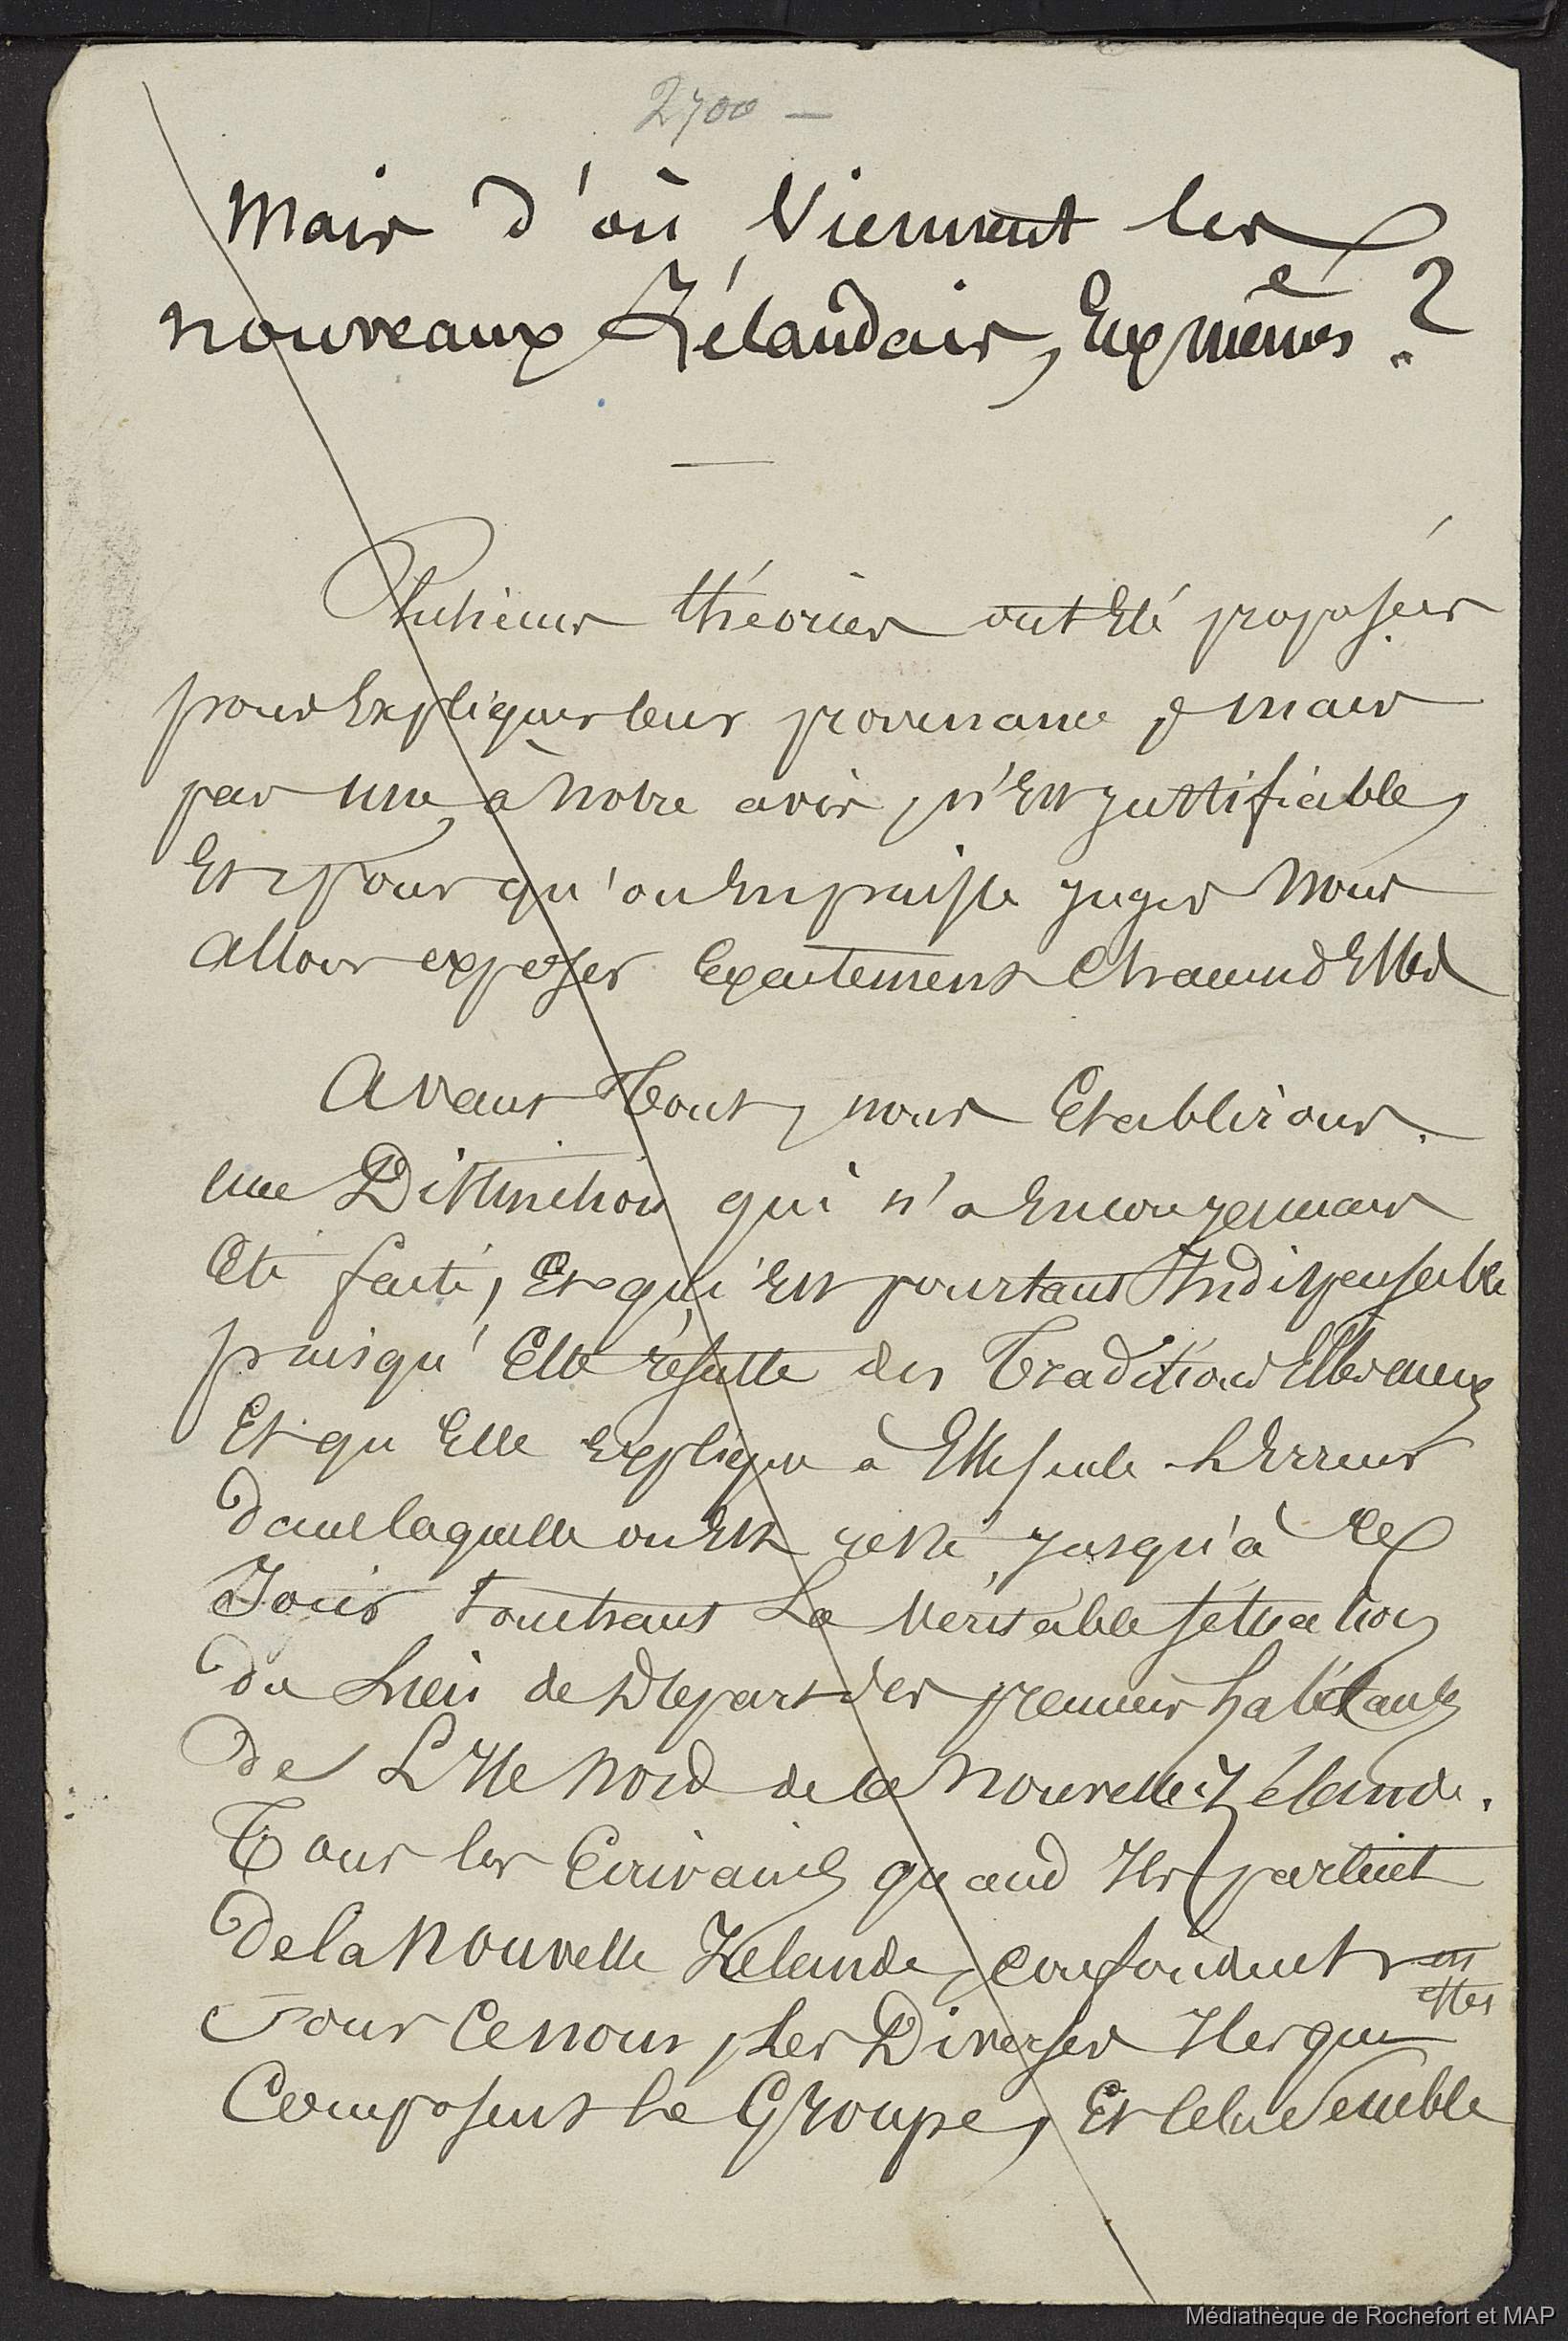 2700 —
Mais d'où Viennent les
nouveaux Zélandais, Eux mêmes ?
Plusieurs théories ont Eté proposées
pour Expliquer leur provenance, mais
pas une, à Notre avis, n'Est justifiable,
Et pour qu'on En puisse juger Nous
allons exposer Exactement Chacune d'Elles
Avant Tout, nous Etablirons
une Distinction qui n'a Encore jamais
Eté faite, Et qui Est pourtant Indispensable
puisqu'Elle résulte des Traditions Elles mêmes
Et qu'Elle Explique à Elle seule L'Erreur
Dans laquelle on Est resté jusqu'à ce
Jour touchant La Véritable situation
du Lieu de Départ des premiers habitants
de L'Ile Nord de la Nouvelle Zélande.
Tous les Ecrivains quand Ils parlent
De la Nouvelle Zélande, confondent en
effet
Sous Ce nom, les Diverses Iles qui
Composent le Groupe, Et Cela Semble
Médiathèque de Rochefort et MAP